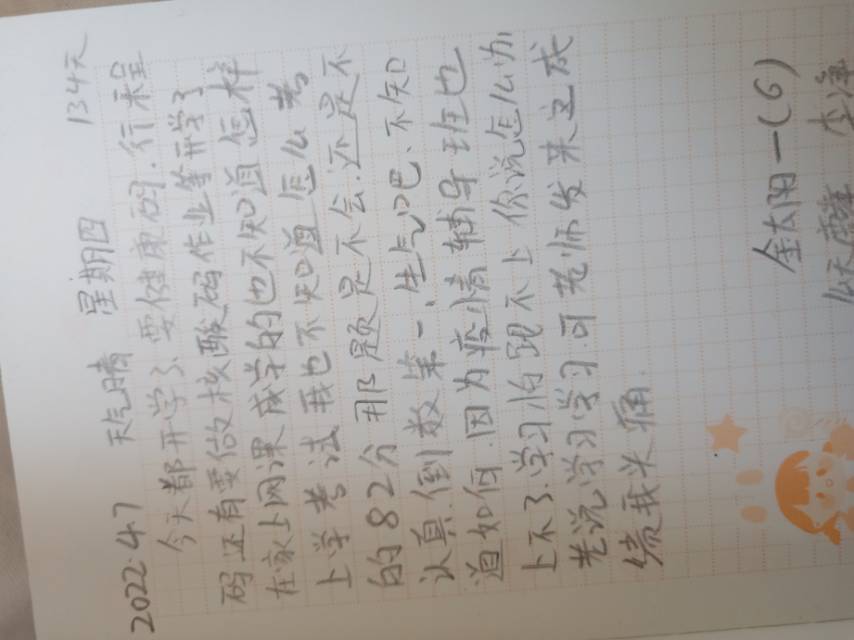 2022.4.7 天气晴 星期四 134天
今天都开学了、要健康码.行程
码还有要做核酸码作业等开学了
在家上网课成学的也不知道怎样
上学考试我也不知道怎么考
的82分那题是不会.还是不
认真.倒数第一.生气吧、不知
道如何.因为疫情辅导班也
上不了.学习怕跟不上你说怎么办
老说学习学习.可老师发来这成
绩我头痛.
金太阳一(6)
李泽